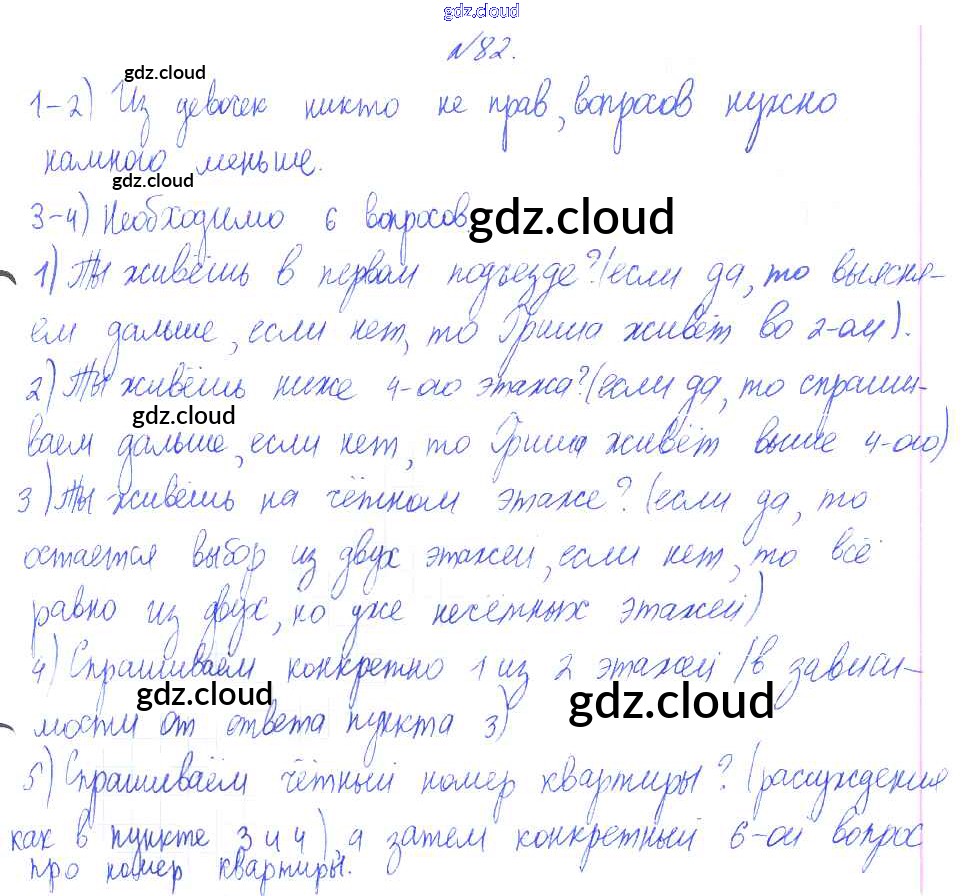 gdz.cloud
№82.
gdz.cloud
1-2) Из девочек никто не прав, вопросов нужно
намного меньше.
gdz.cloud
3-4) Необходимо 6 вопросов. gdz.cloud
1) Ты живёшь в первом подъезде? (если да, то выясня-
ем дальше, если нет, то Гриша живёт во 2-ом).
2) Ты живёшь ниже 4-ого этажа? (если да, то спраши-
gdz.cloud
ваем дальше, если нет, то Гриша живёт выше 4-ого)
3) Ты живёшь на чётном этаже? (если да, то
остается выбор из двух этажей, если нет, то всё
равно из двух, но уже нечётных этажей)
4) Спрашиваем конкретно 1 из 2 этажей (в зависи-
gdz.cloud gdz.cloud
мости от ответа пункта 3)
5) Спрашиваем чётный номер квартиры? (рассуждения
как в пункте 3 и 4), а затем конкретный 6-ой вопрос
про номер квартиры.